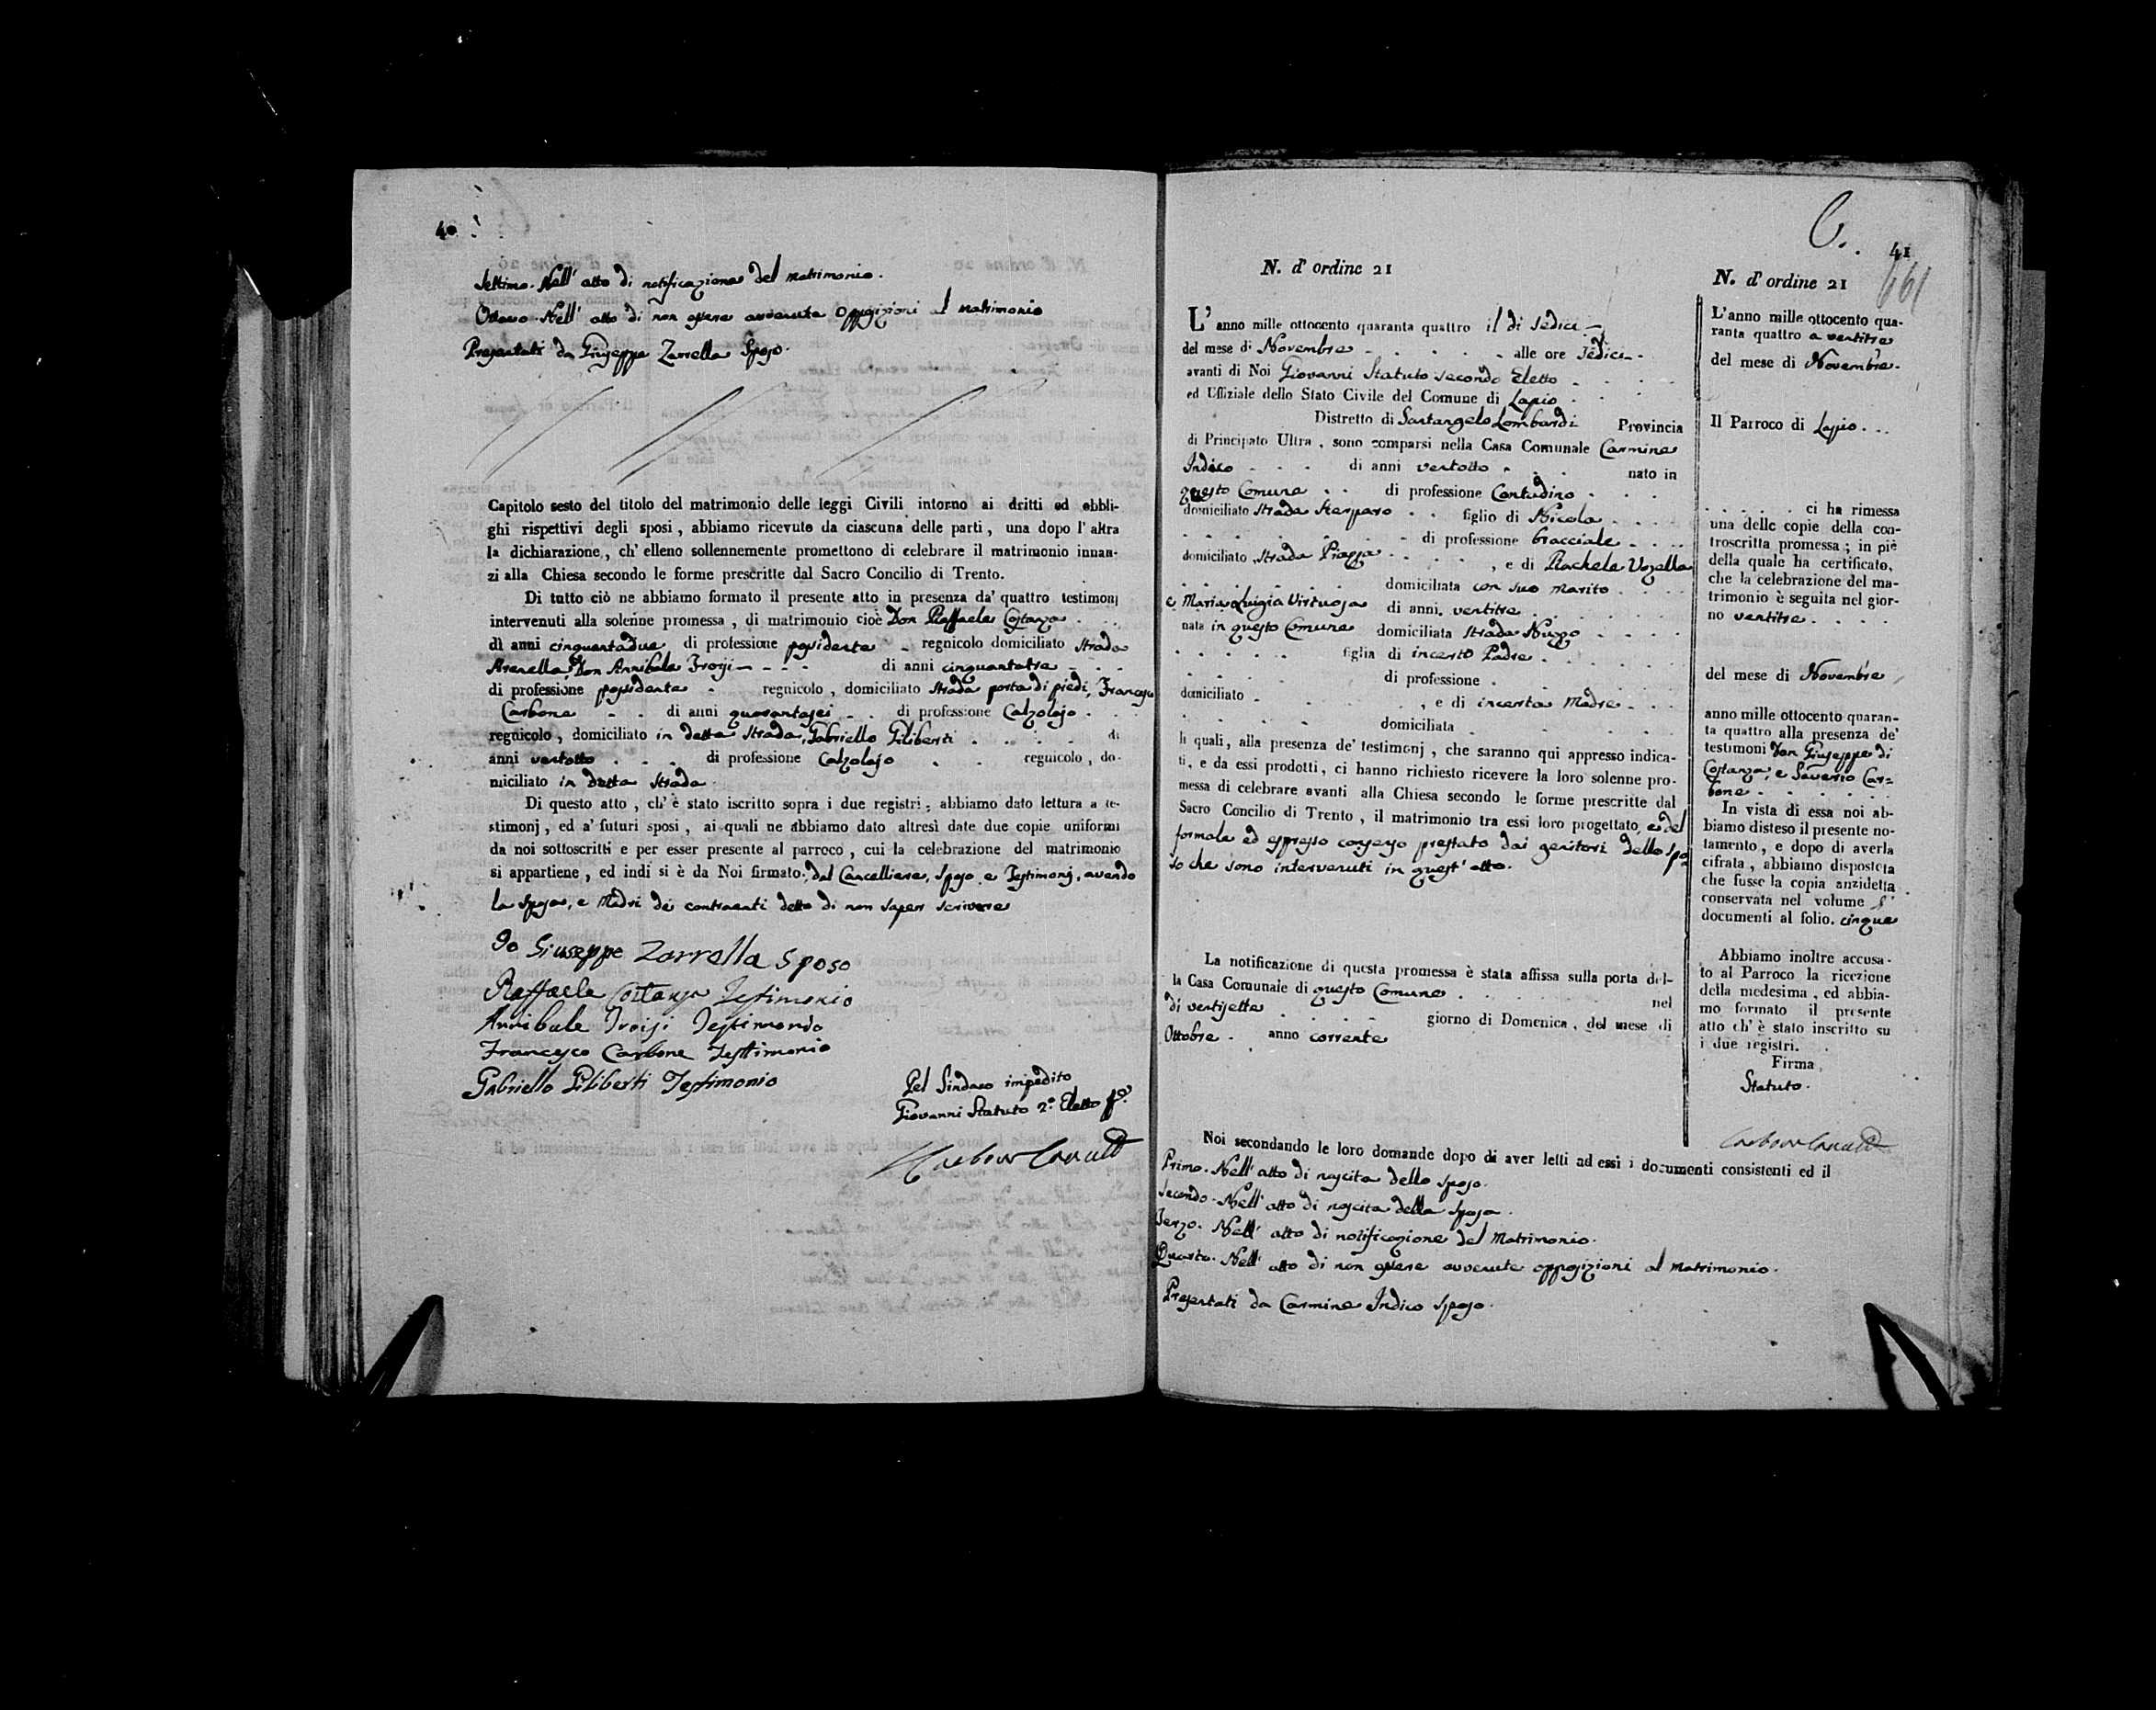 40
Settimo. Nell' atto di notificazione del matrimonio.
Ottavo. Nell' atto di non essere avvenute opposizioni al matrimonio
Presentati da Giuseppe Zarrella Sposo.
Capitolo sesto del titolo del matrimonio delle leggi Civili intorno ai dritti ed obbli-
ghi rispettivi degli sposi, abbiamo ricevuto da ciascuna delle parti, una dopo l' altra
la dichiarazione, ch' elleno sollennemente promettono di celebrare il matrimonio innan-
zi alla Chiesa secondo le forme prescritte dal Sacro Concilio di Trento.
Di tutto ciò ne abbiamo formato il presente atto in presenza da' quattro testimonj
intervenuti alla solenne promessa, di matrimonio cioè Don Raffaele Costanza
di anni cinquantadue di professione possidente regnicolo domiciliato Strada
Arenella, Don Annibale Troisi di anni cinquantatre
di professione possidente regnicolo, domiciliato Strada porta di piedi, Francesco
Carbone di anni quarantasei di professione Calzolajo
regnicolo, domiciliato in detta Strada, Gabriello Piliberti di
anni ventotto di professione Calzolajo regnicolo, do-
miciliato in detta Strada
Di questo atto, ch' è stato iscritto sopra i due registri, abbiamo dato lettura a te-
stimonj, ed a' futuri sposi, ai quali ne abbiamo dato altresì date due copie uniformi
da noi sottoscritti e per esser presente al parroco, cui la celebrazione del matrimonio
si appartiene, ed indi si è da Noi firmato, dal Cancelliere, Sposo e Testimonj, avendo
la Sposa, e Madri dei contraenti detto di non saper scrivere
Io Giuseppe Zarrella Sposo
Raffaele Costanza Testimonio
Annibale Troisi Testimondo
Francesco Carbone Testimonio
Gabriello Piliberti Testimonio
Pel Sindaco impedito
Giovanni Statuto 2.º Eletto
41
661
N. d' ordine 21
L' anno mille ottocento quaranta quattro il dì Sedici
del mese di Novembre alle ore Sedici
avanti di Noi Giovanni Statuto secondo Eletto
ed Uffiziale dello Stato Civile del Comune di Lapio
Distretto di Santangelo Lombardi Provincia
di Principato Ultra, sono comparsi nella Casa Comunale Carmine
Indico di anni ventotto nato in
questo Comune di professione Contadino
domiciliato Strada figlio di Nicola
di professione bracciale
domiciliato Strada Piazza, e di Rachela Vozella
domiciliata con suo marito
e Maria Luigia Virtuosa di anni ventitre
nata in questo Comune domiciliata Strada Nuzzo
figlia di incerto Padre
di professione
domiciliato, e di incerta Madre
domiciliata
li quali, alla presenza de' testimonj, che saranno qui appresso indica-
ti, e da essi prodotti, ci hanno richiesto ricevere la loro solenne pro-
messa di celebrare avanti alla Chiesa secondo le forme prescritte dal
Sacro Concilio di Trento, il matrimonio tra essi loro progettato, e del
formale ed espresso consenso prestato dai genitori dello Spo
so che sono intervenuti in quest' atto.
La notificazione di questa promessa è stata affissa sulla porta del-
la Casa Comunale di questo Comune nel
di ventisette giorno di Domenica, del mese di
Ottobre anno corrente
Noi secondando le loro domande dopo di aver letti ad essi i documenti consistenti ed il
Primo. Nell' atto di nascita dello Sposo.
Secondo. Nell' atto di nascita della Sposa.
Terzo. Nell' atto di notificazione del Matrimonio.
Quarto. Nell' atto di non essere avvenute opposizioni al matrimonio.
Presentati da Carmine Indico Sposo.
N. d' ordine 21
L' anno mille ottocento qua-
ranta quattro a ventitre
del mese di Novembre.
Il Parroco di Lapio
ci ha rimessa
una delle copie della con-
troscritta promessa; in piè
della quale ha certificato,
che la celebrazione del ma-
trimonio è seguita nel gior-
no ventitre
del mese di Novembre
anno mille ottocento quaran-
ta quattro alla presenza de'
testimoni Don Giuseppe di
Costanza, e Saverio Car=
bone
In vista di essa noi ab-
biamo disteso il presente no-
tamento, e dopo di averla
cifrata, abbiamo disposto
che fusse la copia anzidetta
conservata nel volume
documenti al folio. cinque
Abbiamo inoltre accusa-
to al Parroco la ricezione
della medesima, ed abbia-
mo formato il presente
atto ch' è stato inscritto su
i due registri.
Firma
Statuto.